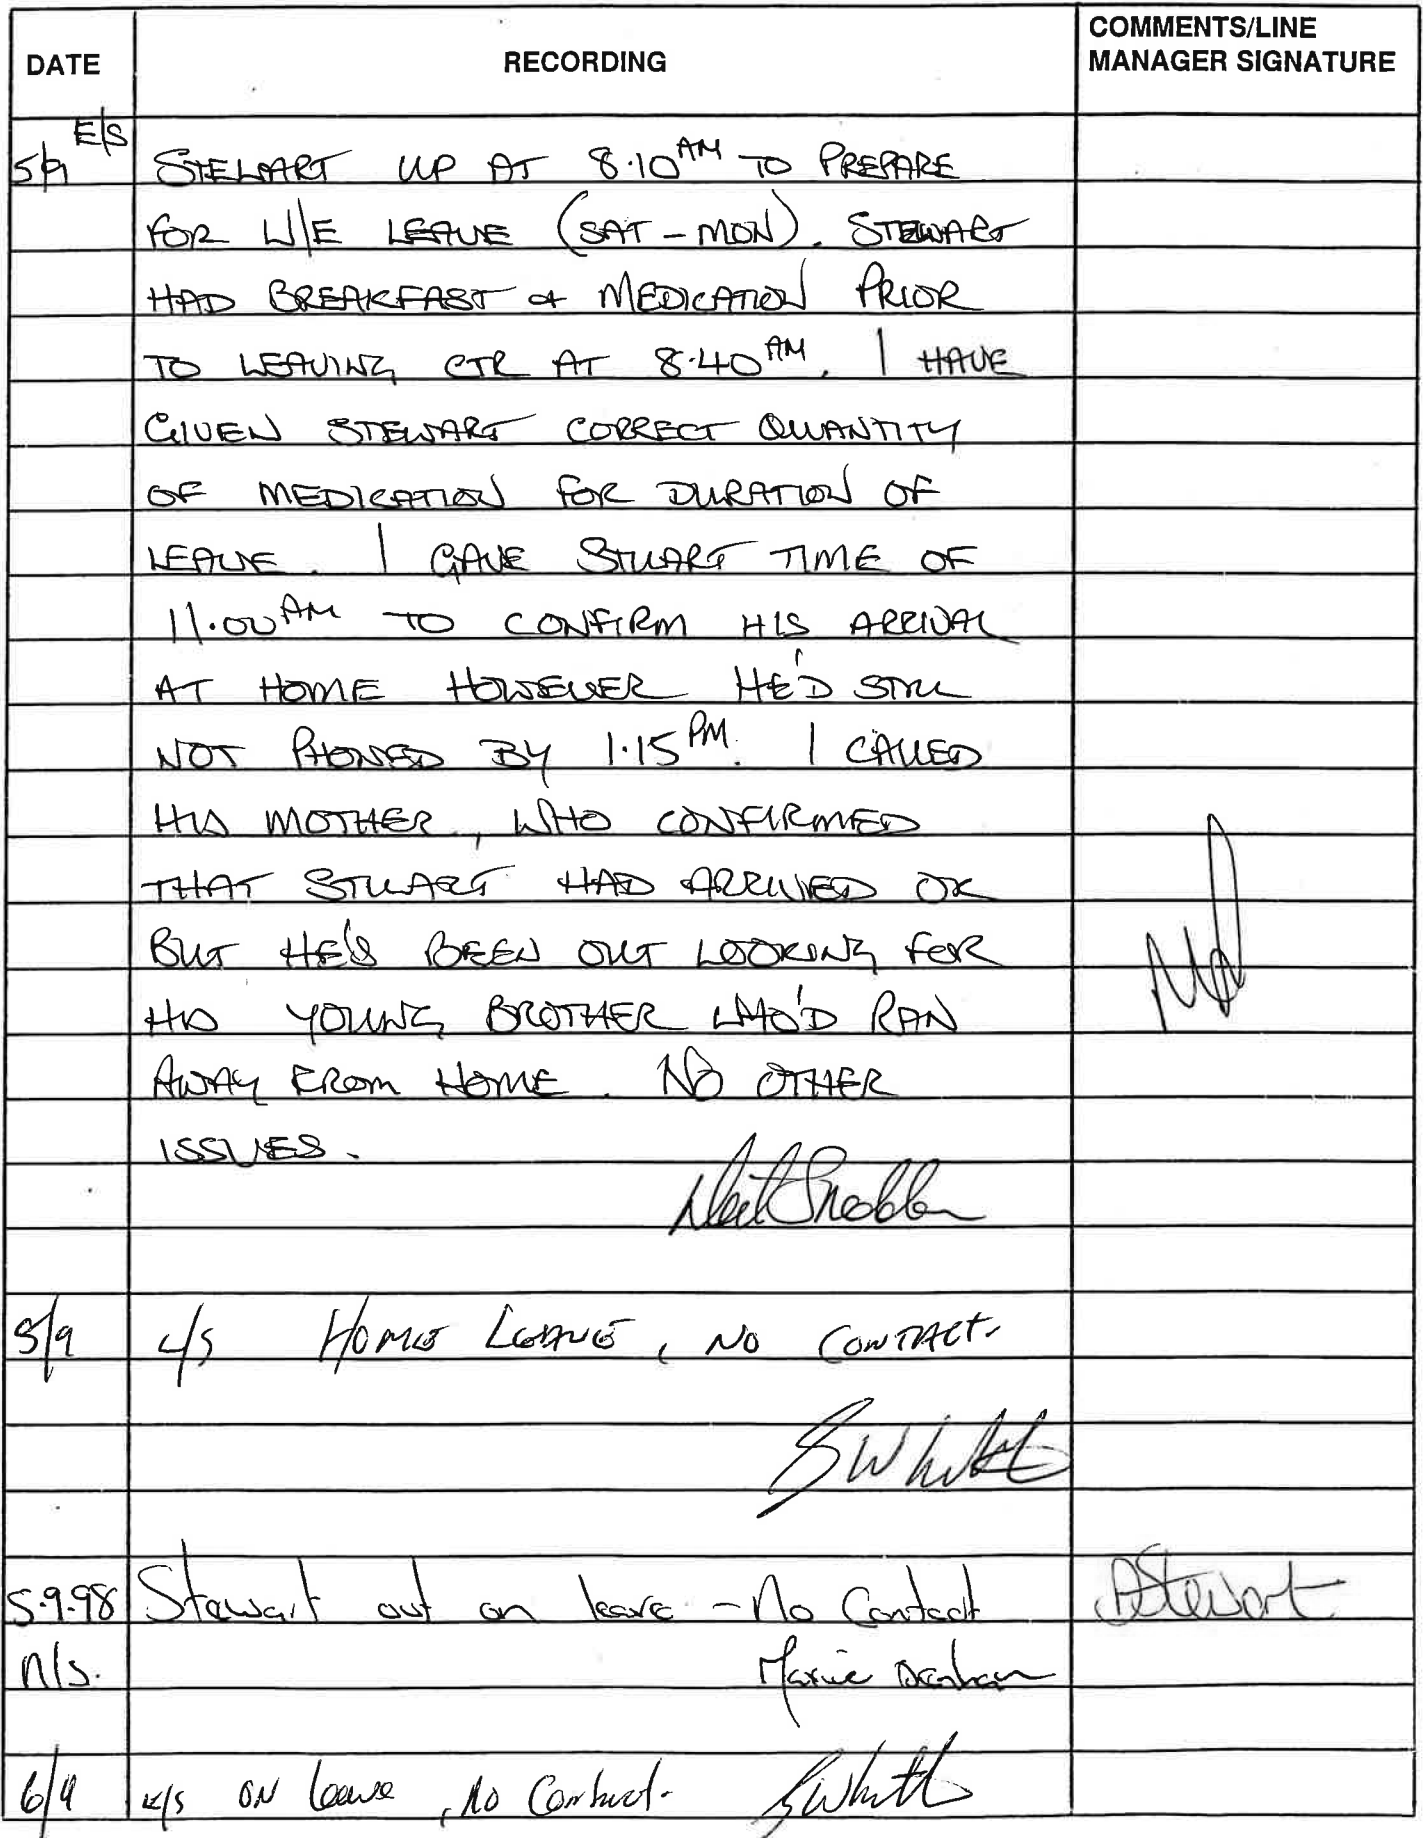 DATE
RECORDING
COMMENTS/LINE
MANAGER SIGNATURE
5/9 E/S
STEWART UP AT 8.10AM TO PREPARE
FOR W/E LEAVE (SAT - MON). STEWART
HAD BREAKFAST & MEDICATION PRIOR
TO LEAVING CTR AT 8.40AM. I HAVE
GIVEN STEWART CORRECT QUANTITY
OF MEDICATION FOR DURATION OF
LEAVE. I GAVE STUART TIME OF
11.00AM TO CONFIRM HIS ARRIVAL
AT HOME HOWEVER HE'D STILL
NOT PHONED BY 1.15PM. I CALLED
HIS MOTHER, WHO CONFIRMED
THAT STUART HAD ARRIVED OK
BUT HE'S BEEN OUT LOOKING FOR
HIS YOUNG BROTHER WHO'D RAN
AWAY FROM HOME. NO OTHER
ISSUES.
5/9 L/S HOME LEAVE, NO CONTACT.
5.9.98 Stewart out on leave - No Contact
AStewart
n/s.
6/9 E/S ON leave, No Contact.